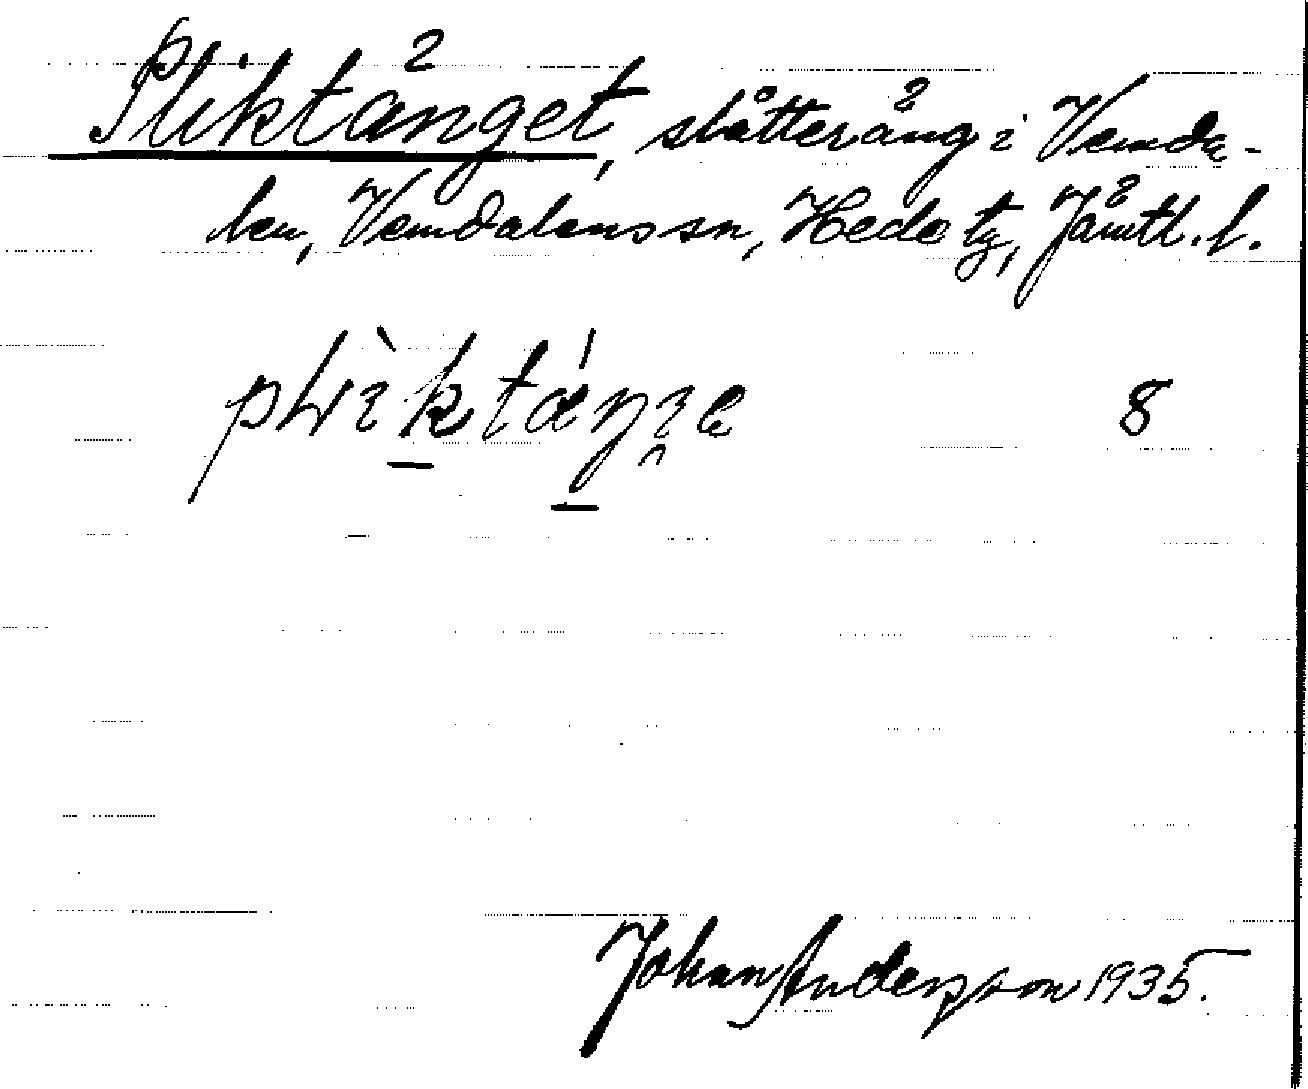 Pliktänget, slåtteräng i Vemda-
len, Vemdalens sn, Hede tg, Jämtl. l.
8
Johan Andersson 1935.